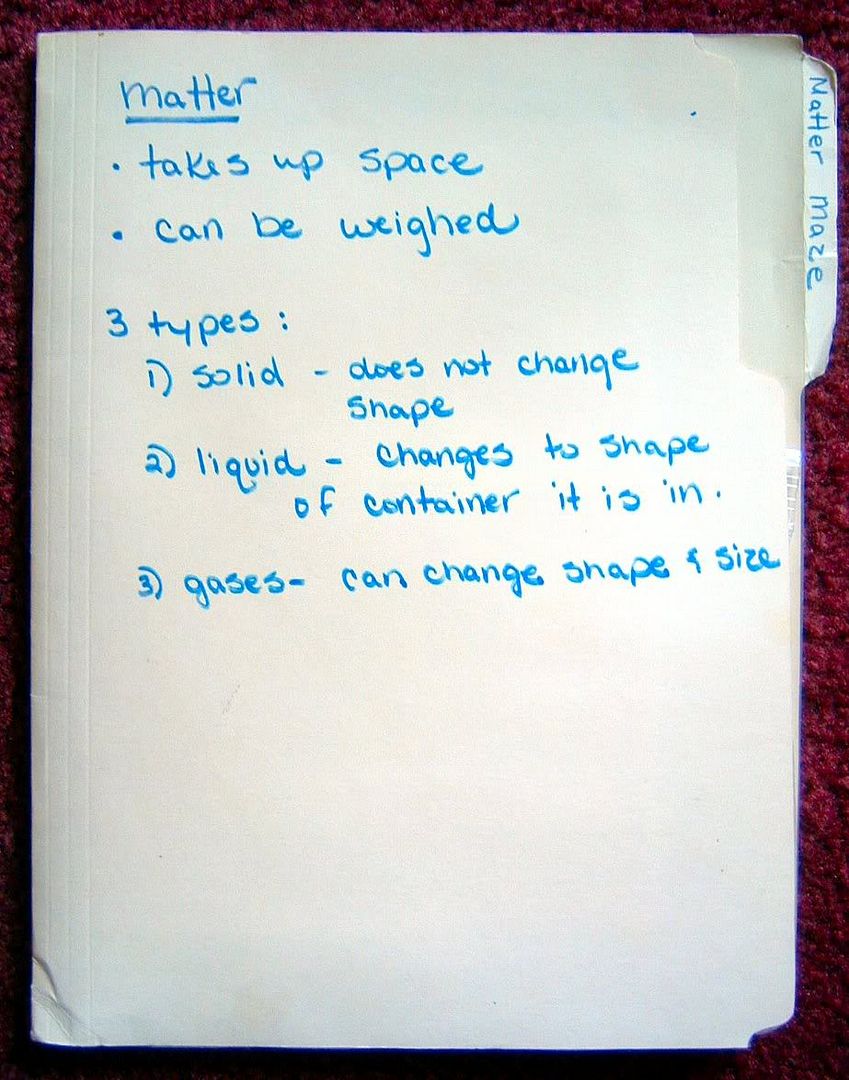 matter
• takes up space
• can be weighed
3 types:
1) solid - does not change
shape
2) liquid - changes to shape
of container it is in.
3) gases- can change shape & size
Matter Maze